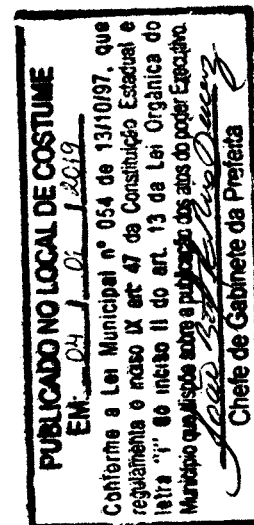 PUBLICADO NO LOCAL DE COSTUME
EM: 04 / 01 / 2019
Conforme a Lei Municipal nº 054 de 13/10/97, que
regulamenta o inciso IX art 47 da Constituição Estadual e
letra "i" do inciso II do art. 13 da Lei Orgânica do
Município que dispõe sobre a publicação dos atos do poder Executivo.
João
Chefe de Gabinete da Prefeita